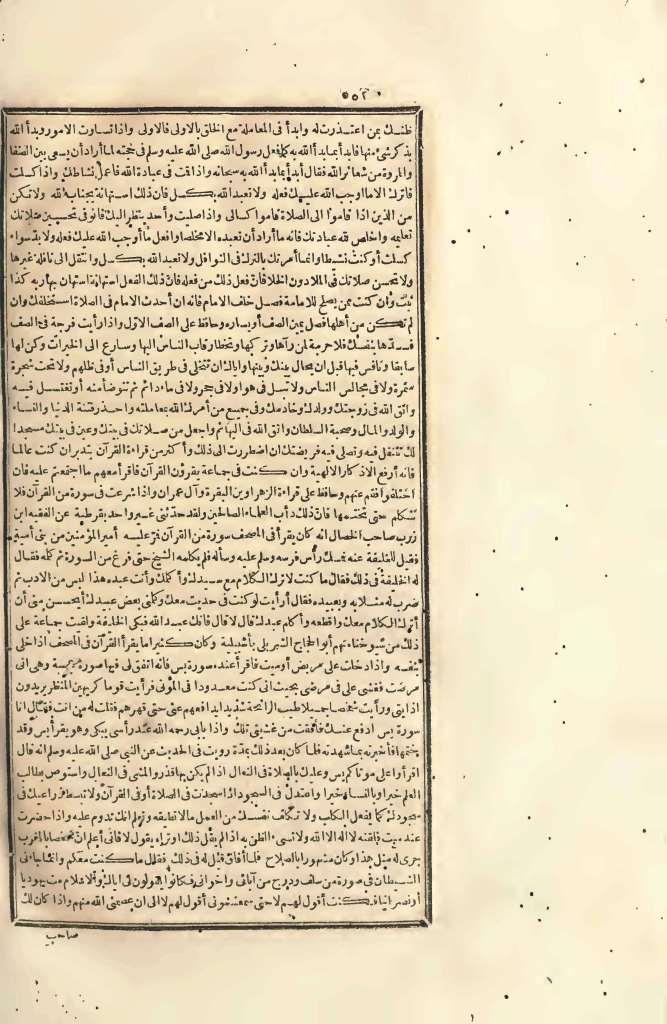 ٥٠٢
ظنك بمن اعتذرت له وابدأ فى المعاملة مع الخلق بالاولى فالاولى واذا تساوت الامور وبدأ الله
بذكر شئ منها فابدأ بما بدأ الله به كما فعل رسول الله صلى الله عليه وسلم فى حجته لما أراد أن يسعى بين الصفا
والمروة من شعائر الله فقال أبدأ بما بدأ الله به سبحانه واذا قت فى عبادة الله فاعمل نشاطك واذا كسلت
فاترك الا ما أوجب الله عليك فعله ولا تعبد الله بكسل فان ذلك استهانة بجناب الله ولا تكن
من الذين اذا قاموا الى الصلاة قاموا كسالى واذا صليت وأحد ينظر اليك فانو فى تحسين صلاتك
تعليمه واخلص لله عبادتك فانه ما أراد أن تعبده الا مخلصا وافعل ما أوجب الله عليك فعله ولا بد سواء
كسلت أو كنت نشيطا وانما أمرتك بالترك فى النوافل ولا تعبد الله بكسل وانتقل الى نافلة غيرها
ولا تحسن صلاتك فى الملا دون الخلا فان فعل ذلك من فعله فان ذلك الفعل استهانة استهان بها ربه كذا
وان كنت ممن يصلح للامامة فصل خلف الامام فانه ان أحدث الامام فى الصلاة استخلفك وان
لم تكن من أهلها فصل يمين الصف أو يساره وحافظ على الصف الاول واذا رأيت فرجة فى الصف
فسدها بنفسك فلا حرمة لمن رآها وتركها وتخط رقاب الناس اليها وسارع الى الخيرات وكن لها
سابقا ونافس فيها قبل ان يحال بينك وبينها واياك ان تتخلى فى طريق الناس أو فى ظلهم ولا تحت شجرة
مثمرة ولا فى مجالس الناس ولا تبل فى هوا ولا فى جحر ولا فى ماء دائم ثم تتوضأ منه أو تغتسل فيه
واتق الله فى زوجتك وولدك وخادمك وفى جميع من أمرك الله بمعاملته واحذر فتنة الدنيا والنساء
والولد والمال وصحبة السلطان واتق الله فى البهائم واجعل من صلاتك فى بيتك وعين فى بيتك مسجدا
لك تتنفل فيه وتصلى فيه فريضتك ان اضطررت الى ذلك وأكثر من قراءة القرآن بتدبر ان كنت عالما
فانه أرفع الاذكار الالهية وان كنت فى جماعة يقرؤن القرآن فاقرأ معهم ما اجتمعتم عليه فان
اختلفوا فقم عنهم وحافظ على قراءة الزهراوين البقرة وآل عمران واذا شرعت فى سورة من القرآن فلا
تتكلم حتى تختمها فان ذلك دأب العلماء الصالحين ولقد حدثنى غير واحد بقرطبة عن الفقيه ابن
زرب صاحب الخصال انه كان يقرأ فى المصحف سورة من القرآن فمر عليه أمير المؤمنين من بنى أمية
فقيل للخليفة عنه فمسك رأس فرسه وسلم عليه وسأله فلم يكلمه الشيخ حتى فرغ من السورة ثم كله فقال
له الخليفة فى ذلك فقال ما كنت لاترك الكلام مع سيدك وأكلمك وأنت عبده هذا ليس من الادب ثم
ضرب له مثلا به وبعبيده فقال أرأيت لو كنت فى حديث معك وكلمنى بعض عبيدك أيحسن منى أن
أترك الكلام معك واقطعه وأكلم عبدك قال لا قال فانك عبد الله فبكى الخليفة ولقيت جماعة على
ذلك من شيوخنا منهم أبو الحجاج الشبربلى باشبيلية وكان كثيرا ما يقرأ القرآن فى المصحف اذا خلى
بنفسه واذا دخلت على مريض أو ميت فاقرأ عنده سورة يس فانه اتفق لى فيها صورة عجيبة وهى انى
مرضت فغشى على فى مرضى بحيث انى كنت معدودا فى الموتى فرأيت قوما كريهين المنظر يريدون
اذايتى ورأيت شخصا جميلا طيب الرائحة شديدا يدافعهم عنى حتى قهرهم فقلت له من انت فقال انا
سورة يس ادفع عنك فأفقت من غشيتى تلك واذا بابى رحمه الله عند رأسى يبكى وهو يقرأ يس وقد
ختمها فأخبرته بما شهدته فلما كان بعد ذلك بمدة رويت فى الحديث عن النبى صلى الله عليه وسلم انه قال
اقرأوا على موتاكم يس وعليك بالصلاة فى النعال اذا لم يكن بها قذر والمشى فى النعال واستوص بطالب
العلم خيرا وبالنساء خيرا واعتدل فى السجود اذا سجدت فى الصلاة أو فى القرآن ولا تبسط ذراعيك فى
سجودك كما يفعل الكلب ولا تكلف نفسك من العمل ما لا تطيقه وتعلم انك تدوم عليه واذا حضرت
عند ميت فلقنه لا اله الا الله ولا تسىء الظن به اذا لم يقل ذلك او تراه يقول لا فانى أعلم ان شخصا بالمغرب
جرى له مثل هذا وكان مشهورا بالصلاح فلما أفاق قيل له فى ذلك فقال ما كنت معكم وانما جاءنى
الشيطان فى صورة من سلف ودرج من آبائى واخوانى فكانوا يقولون لى اياك والاسلام مت يهوديا
أو نصرانيا فكنت أقول لهم لا حتى سمعتمونى أقول لهم لا الى ان عصمنى الله منهم واذا كان لك
صاحب